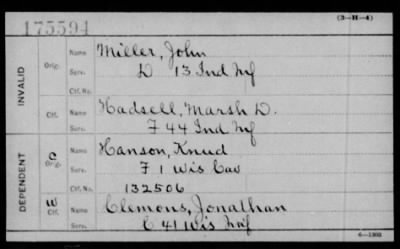 175594
(3—H—4)
INVALID
Orig.
Name Miller, John
Serv. D 13 Ind Inf
Ctf. No.
Ctf.
Name Hadsell, Marsh D.
Serv. F 44 Ind Inf
DEPENDENT
C
Orig.
Name Hanson, Knud
Serv. F 1 Wis Cav
Ctf. No. 132506
W
Ctf.
Name Clemons, Jonathan
Serv. C 41 Wis Inf
6—1303